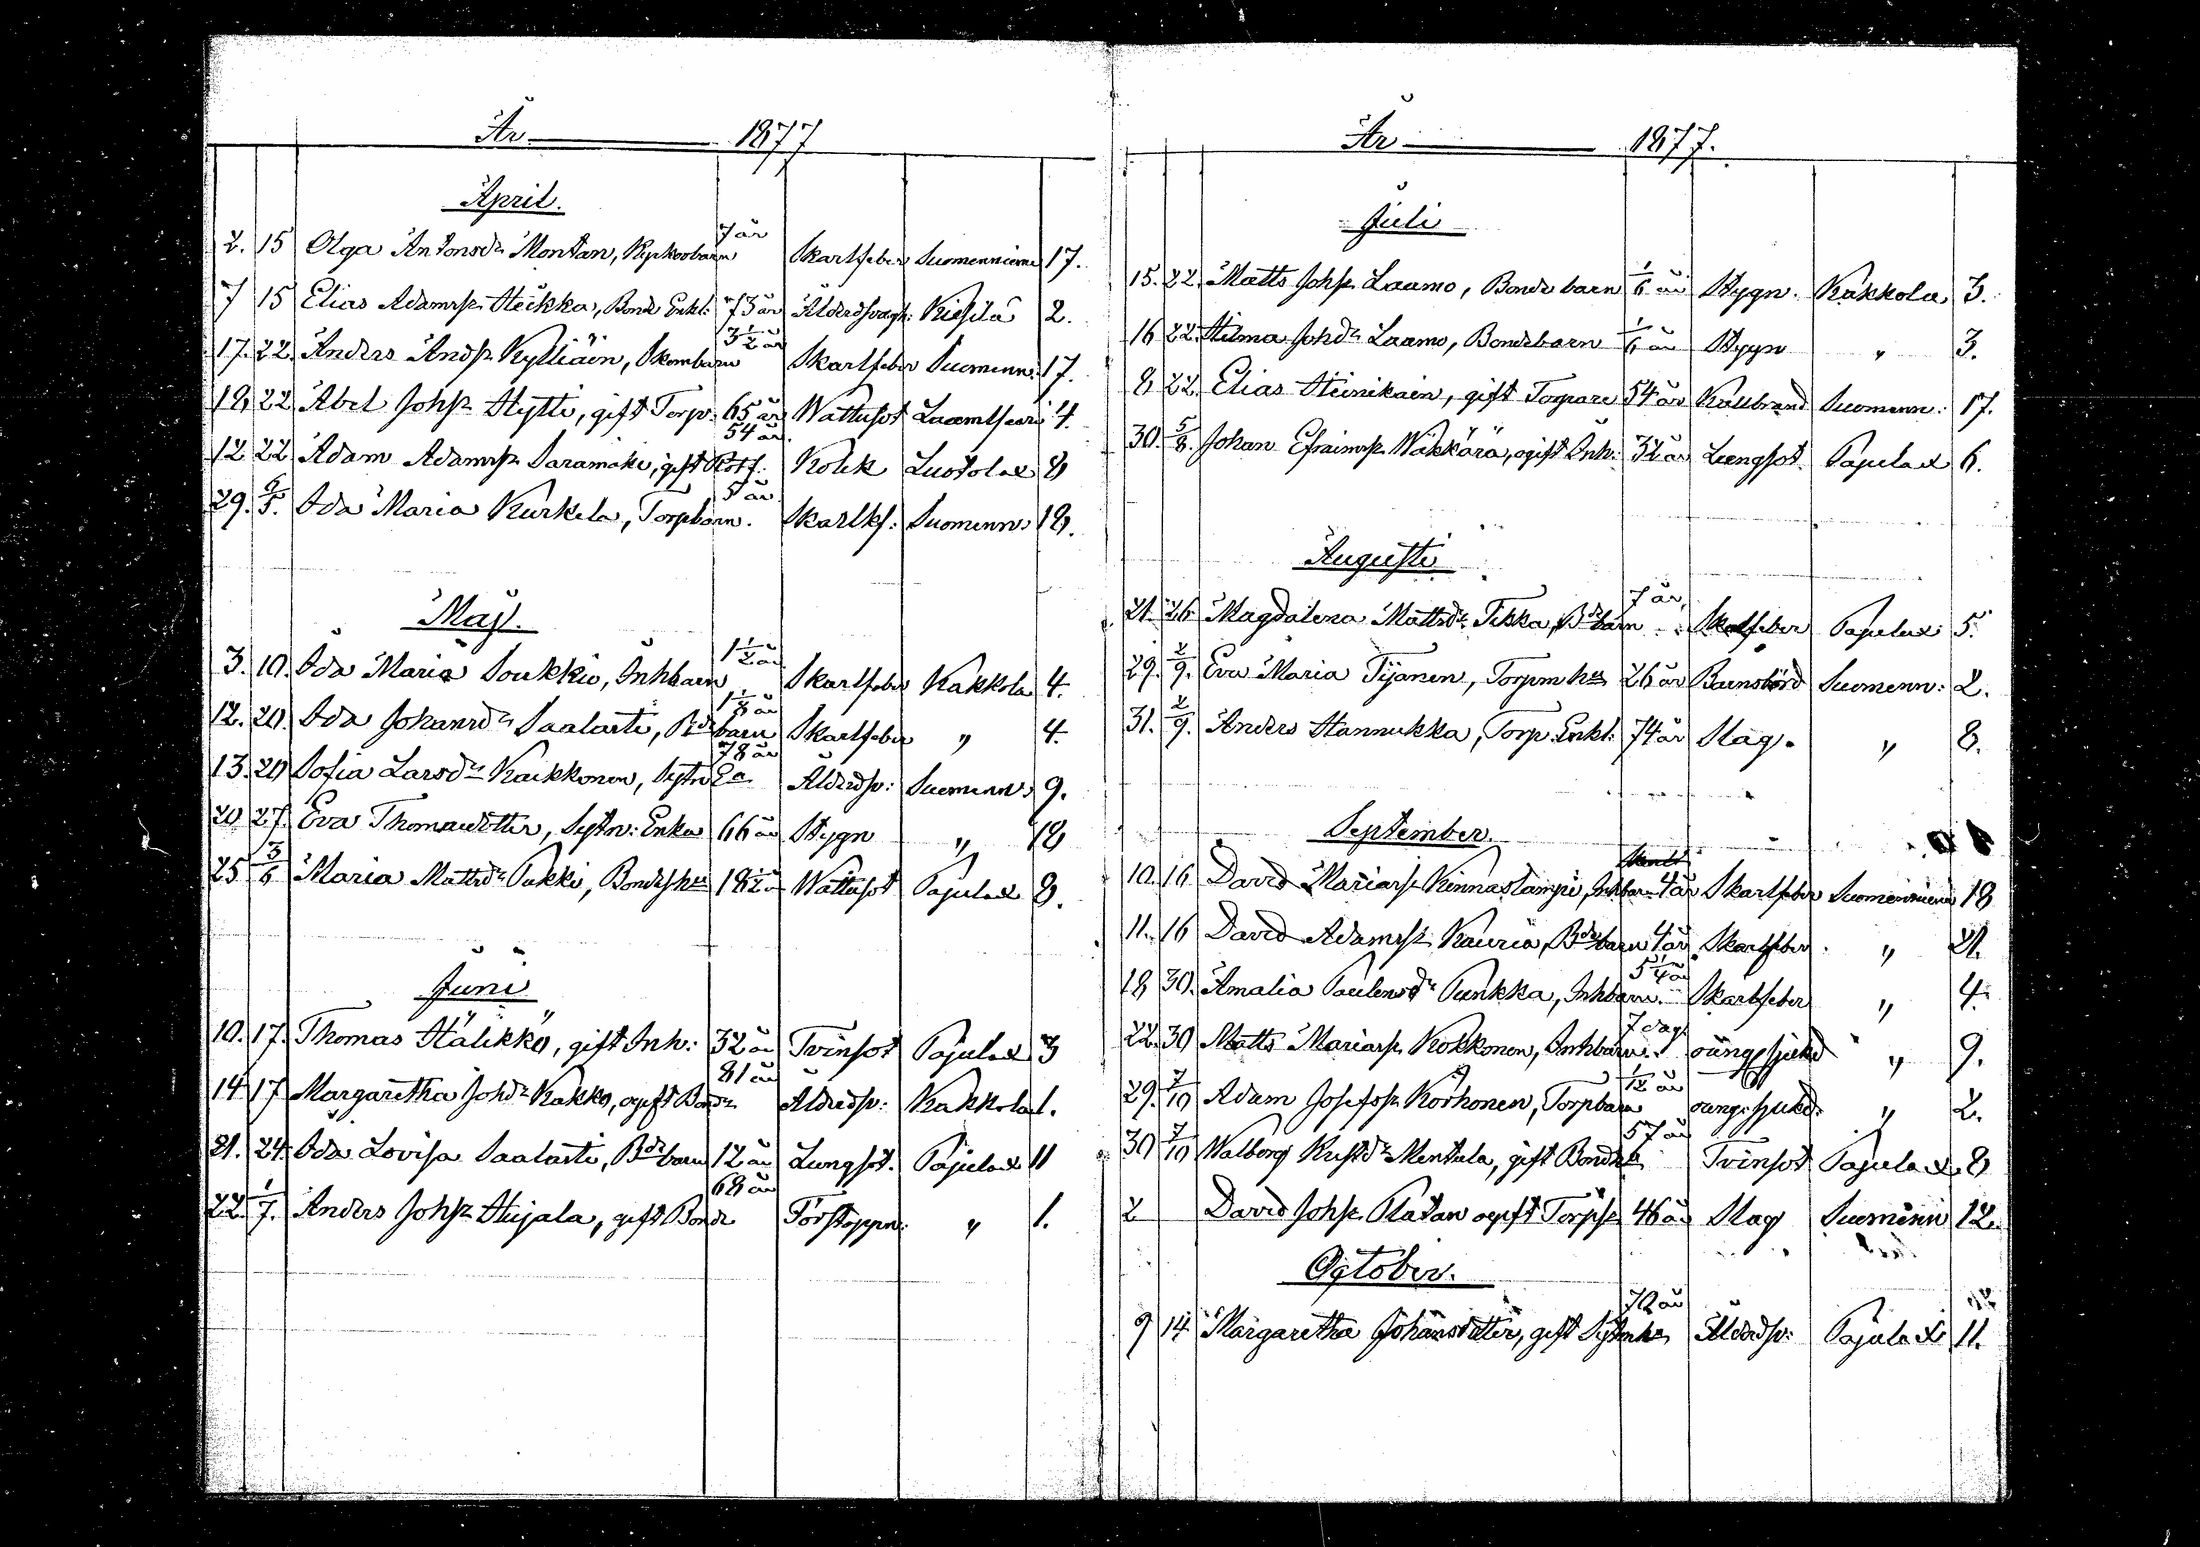 År 1877
April.
2. 15 Olga Antonsdr Montan, Kyrkovbarn 7 år Skarlfeber Suomenniemi 17.
7 15 Elias Adamsn Heikka, Bond Enkl: 73 år Ålderdsvagh: Kiesilä 2.
17. 22. Anders Andsn Kylliäin, Skombarn 3 1/2 år Skarlfeber Suomenn: 17.
18 22 Abel Johsn Hytti, gift Torp. 65 år Wattusot 4.
12 22 Adam Adamsn Saramäki, gift 54 år Kolik Luotolax 8
29. 6/5. Ida Maria Kurkela, Torpbarn. 5 år Skarlkf: Suomenn: 18.
Maji.
3. 10. Ida Maria Soukkio, Inhbarn 1 1/2 år Skarlfeber Kakkola 4.
12. 20. Ida Johansdr Saalasti, Bdebarn 1 1/8 år Skarlfeber " 4.
13. 20 Sofia Larsdr Kaikkonen, Sytn Ea 78 år Ålderdsv: Suomenn: 9.
20 27. Eva Thomasdotter, Sytn: Enka 66 år Stygn " 18
25 3/6 Maria Mattsdr Pukki, Bondehu 18 1/2 Wattusot Pajulax 8.
Juni
10. 17. Thomas Hälikkö, gift Inh: 32 år Tvinsot Pajulax 3
14 17 Margaretha Johdr Kakko, ogift Bondr 81 år Ålderdsv: Kakkola 1.
21. 24. Ida Lovisa Saalasti, Bdebarn 12 år Lungsot. Pajulax 11
22. 1/7. Anders Johsn Heijala, gift Bonde 68 år Förstoppn: " 1.
År 1877.
Juli
15. 22. Matts Johsn Laamo, Bondebarn 1/6 år Stygn. Kakkola 3.
16 22. Hilma Johdr Laamo, Bondebarn 1/6 år Stygn " 3.
8 22. Elias Heinikain, gift Torpare 54 år Kallbrand Suomenn: 17.
30. 5/8. Johan Efraimsn Wäkkärä, ogift Inh: 32 år Lungsot. Pajulax 6.
Augusti
21. 26 Magdalena Mattsdr Tikka, Bdebarn 7 år. Skalfeber Pajulax 5.
29. 2/9. Eva Maria Tijanen, Torpmhu 26 år Barnsbörd Suomenn: 2.
31. 2/9. Anders Hannukka, Torp. Enkl: 74 år Slag. " 8.
September.
10. 16 David Mariasn Kinnaslampi, Inhbarn 4 år Skarlfeber Suomenniemi 18
11. 16 David Adamsn Kauria, Bdebarn 4 år Skarlfeber " 21.
18 30. Amalia Paulensdr Punkka, Inhbarn. 5 1/4 år Skarlfeber " 4.
22. 30 Matts Mariasn Kokkonen, Inhbarn. 7 dag. oängssjukd " 9.
29. 7/10 Adam Josefsn Korhonen, Torpbarn 1/12 år oängssjukd. " 2.
30 7/10 Walborg Kristdr Mentula, gift Bondeh 57 år Tvinsot Pajulax 8
2 David Johsn Platan ogift Torpsn 46 år Slag Suomenn 12.
October.
9 14 Margaretha Johansdotter, gift Sytnh 70 år Ålderdsv: Pajulax 11.